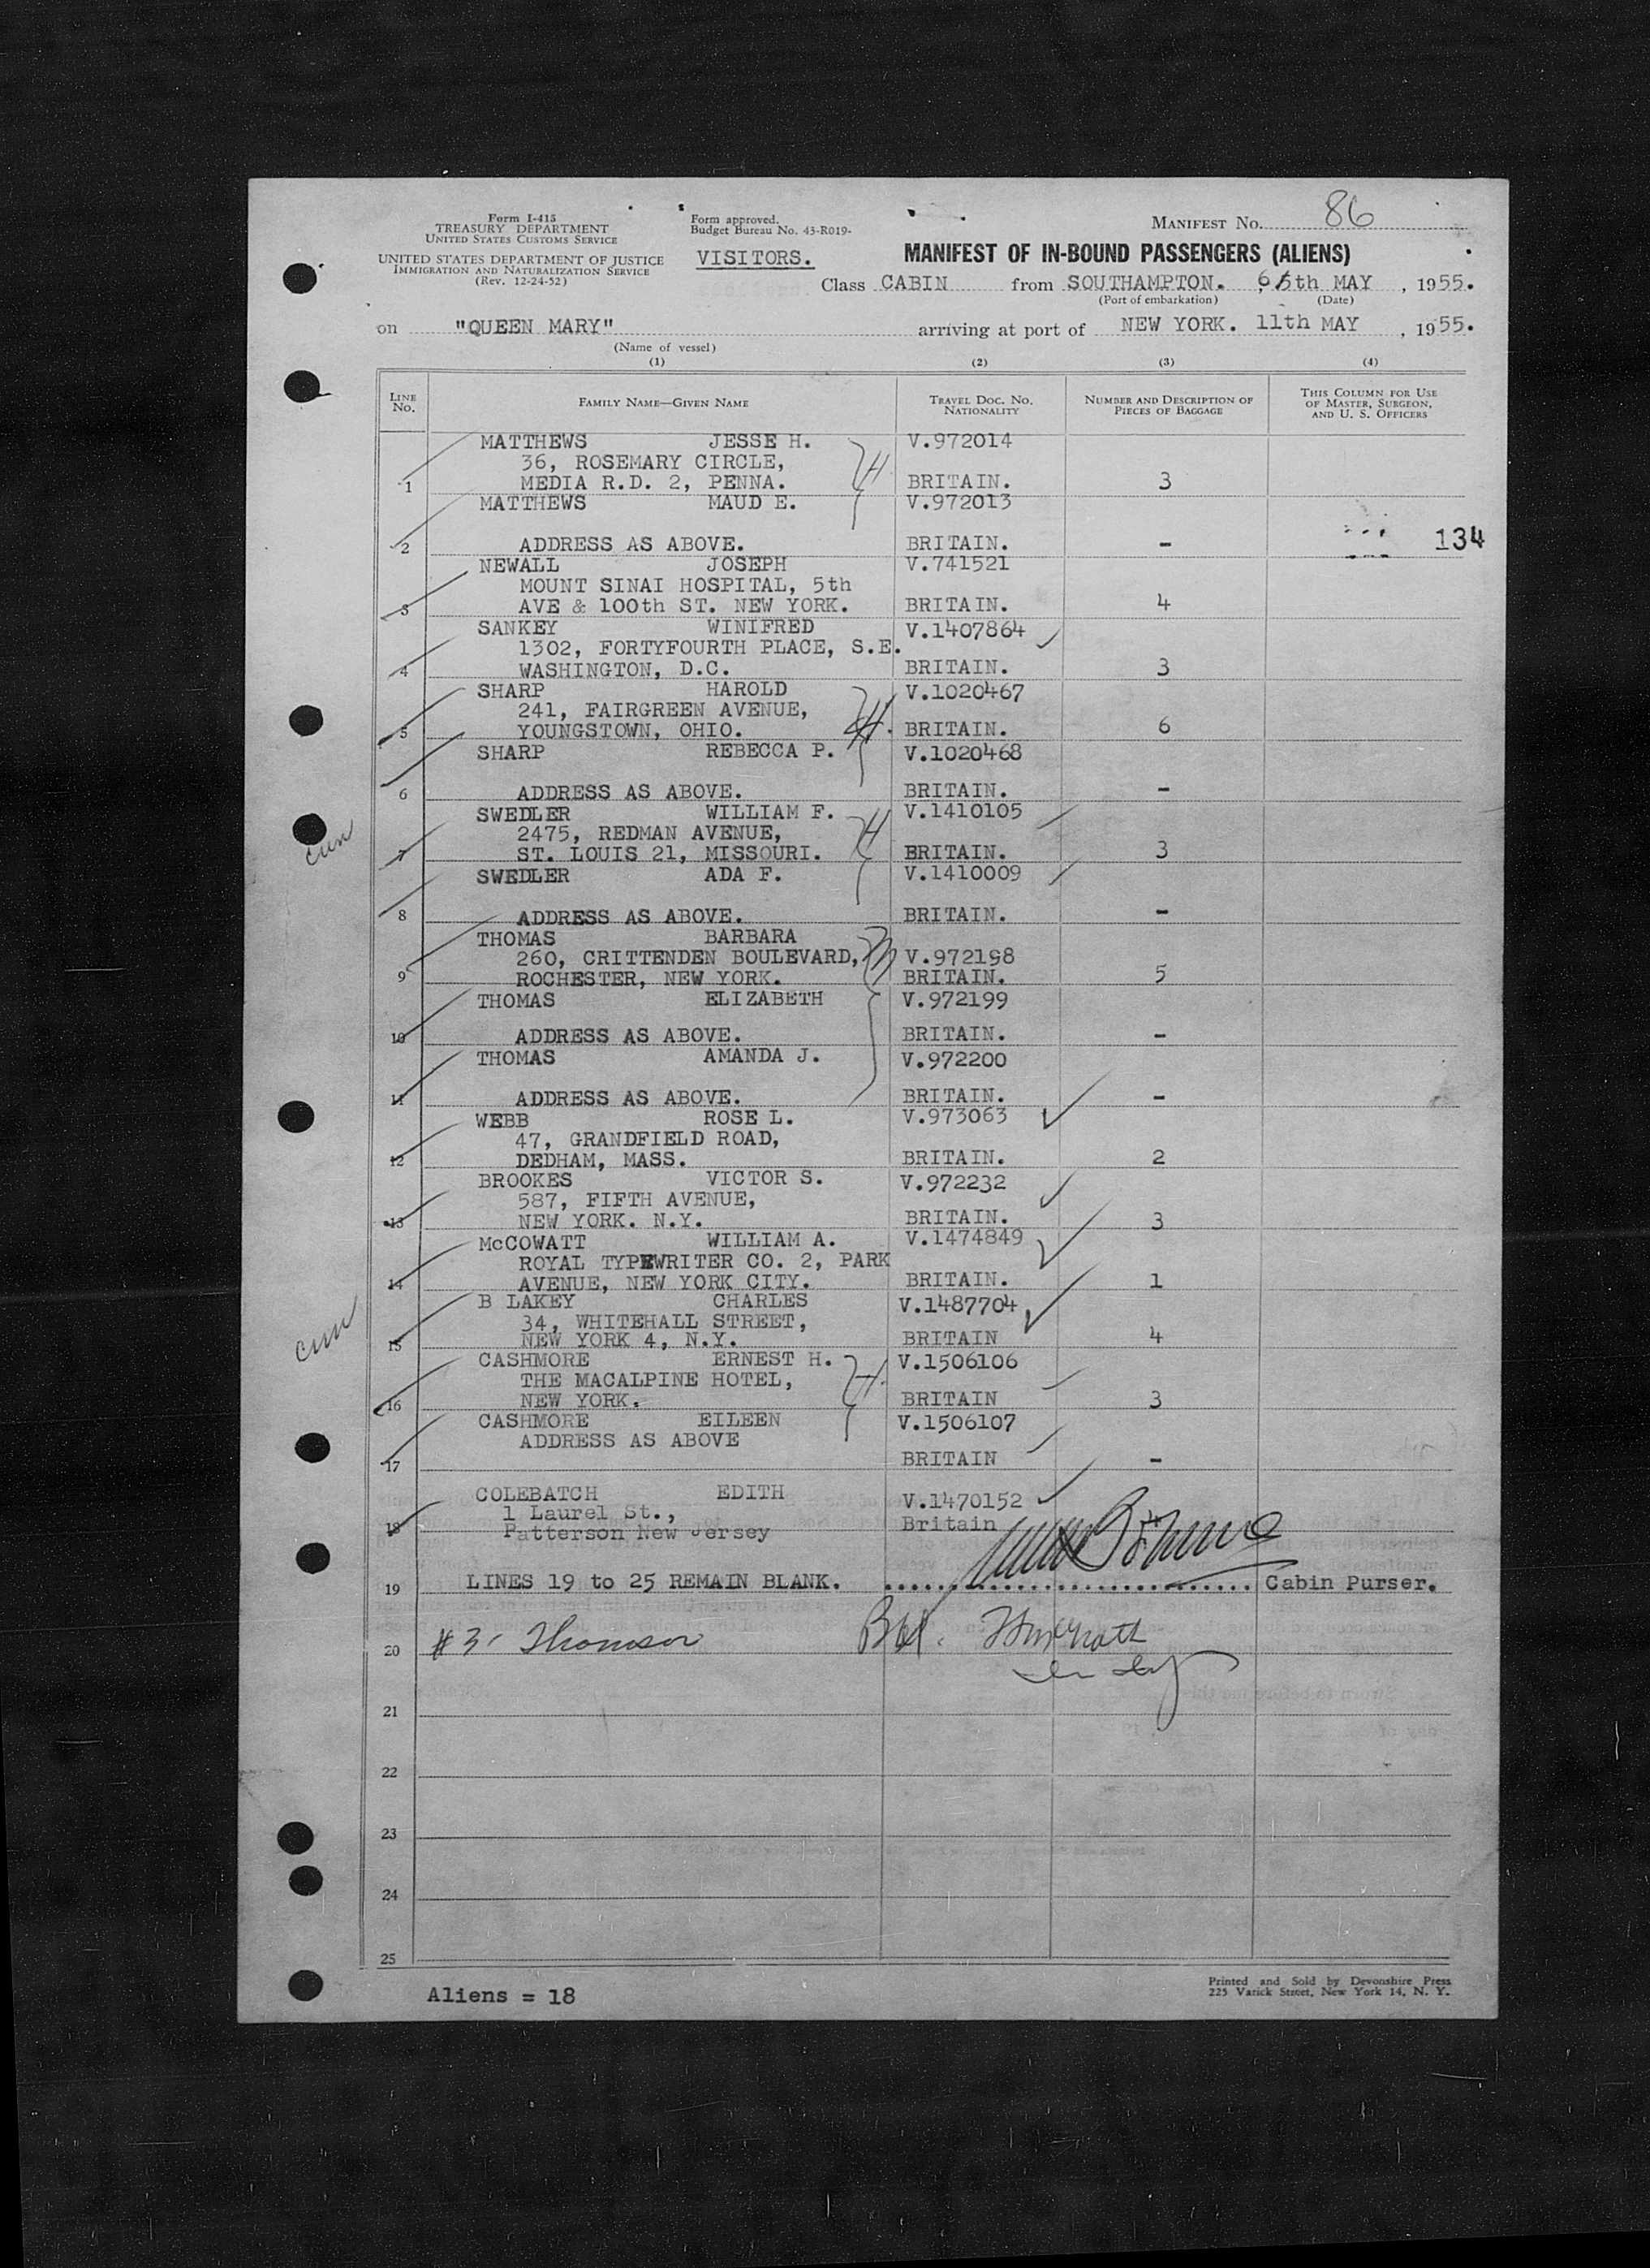 Form I-415
TREASURY DEPARTMENT
UNITED STATES CUSTOMS SERVICE
UNITED STATES DEPARTMENT OF JUSTICE
IMMIGRATION AND NATURALIZATION SERVICE
(Rev. 12-24-52)
Form approved.
Budget Bureau No. 43-R019-
VISITORS.
MANIFEST NO. 86
MANIFEST OF IN-BOUND PASSENGERS (ALIENS)
Class CABIN from SOUTHAMPTON. 6th MAY, 1955.
(Port of embarkation) (Date)
on "QUEEN MARY" arriving at port of NEW YORK. 11th MAY, 1955.
(Name of vessel)
(1) (2) (3) (4)
LINE No. FAMILY NAME—GIVEN NAME TRAVEL DOC. NO. NATIONALITY NUMBER AND DESCRIPTION OF PIECES OF BAGGAGE THIS COLUMN FOR USE OF MASTER, SURGEON, AND U. S. OFFICERS
MATTHEWS JESSE H. V.972014
36, ROSEMARY CIRCLE,
1 MEDIA R.D. 2, PENNA. BRITAIN. 3
MATTHEWS MAUD E. V.972013
2 ADDRESS AS ABOVE. BRITAIN. - 134
NEWALL JOSEPH V.741521
MOUNT SINAI HOSPITAL, 5th
3 AVE & 100th ST. NEW YORK. BRITAIN. 4
SANKEY WINIFRED V.1407864
1302, FORTYFOURTH PLACE, S.E.
4 WASHINGTON, D.C. BRITAIN. 3
SHARP HAROLD V.1020467
241, FAIRGREEN AVENUE,
5 YOUNGSTOWN, OHIO. BRITAIN. 6
SHARP REBECCA P. V.1020468
6 ADDRESS AS ABOVE. BRITAIN. -
SWEDLER WILLIAM F. V.1410105
2475, REDMAN AVENUE,
7 ST. LOUIS 21, MISSOURI. BRITAIN. 3
SWEDLER ADA F. V.1410009
8 ADDRESS AS ABOVE. BRITAIN. -
THOMAS BARBARA
260, CRITTENDEN BOULEVARD, V.972198
9 ROCHESTER, NEW YORK. BRITAIN. 5
THOMAS ELIZABETH V.972199
10 ADDRESS AS ABOVE. BRITAIN. -
THOMAS AMANDA J. V.972200
11 ADDRESS AS ABOVE. BRITAIN. -
WEBB ROSE L. V.973063
47, GRANDFIELD ROAD,
12 DEDHAM, MASS. BRITAIN. 2
BROOKES VICTOR S. V.972232
587, FIFTH AVENUE,
13 NEW YORK. N.Y. BRITAIN. 3
McCOWATT WILLIAM A. V.1474849
ROYAL TYPEWRITER CO. 2, PARK
14 AVENUE, NEW YORK CITY. BRITAIN. 1
B LAKEY CHARLES V.1487704
34, WHITEHALL STREET,
15 NEW YORK 4, N.Y. BRITAIN 4
CASHMORE ERNEST H. V.1506106
THE MACALPINE HOTEL,
16 NEW YORK. BRITAIN 3
CASHMORE EILEEN V.1506107
ADDRESS AS ABOVE
17 BRITAIN -
COLEBATCH EDITH V.1470152
1 Laurel St.,
18 Patterson New Jersey Britain 4
19 LINES 19 to 25 REMAIN BLANK. Cabin Purser.
20 #3, Thomson
21
22
23
24
25
Aliens = 18
Printed and Sold by Devonshire Press
225 Varick Street, New York 14, N. Y.